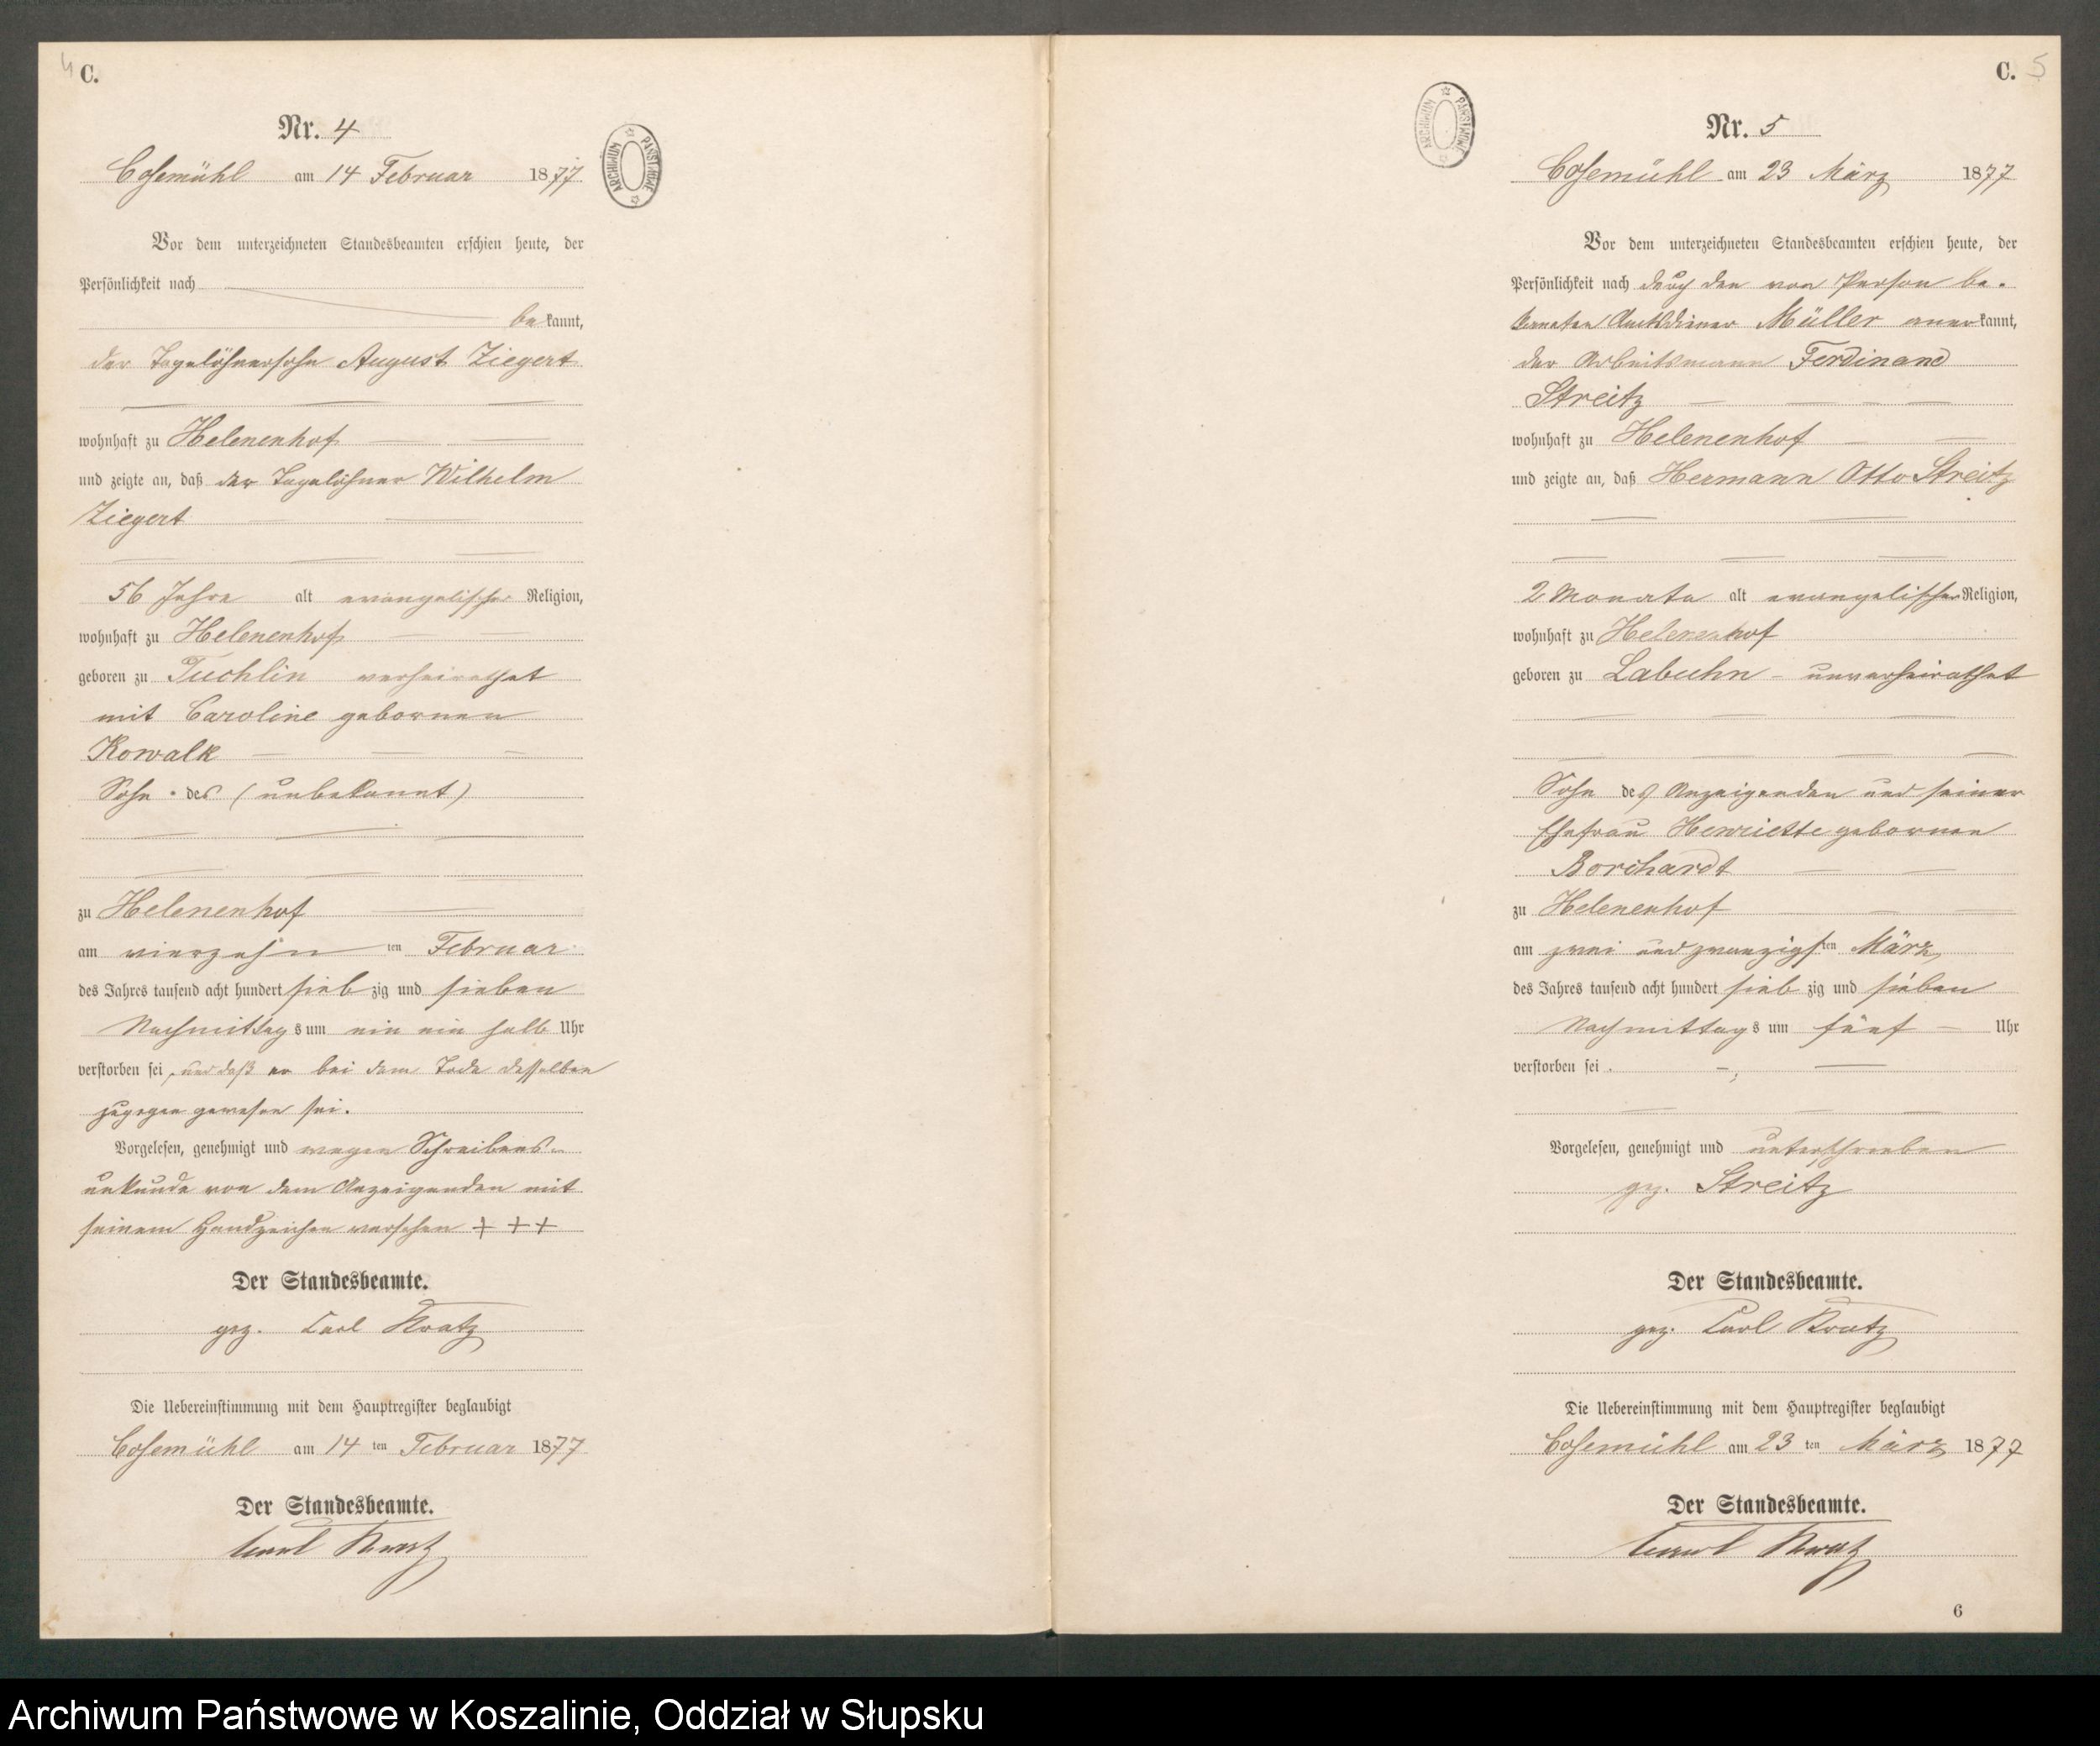 4 C.
Nr. 4
Cosemühl am 14 Februar 1877
ARCHIWUM PAŃSTWOWE
Vor dem unterzeichneten Standesbeamten erschien heute, der
Persönlichkeit nach
bekannt,
der Tagelöhnersohn August Ziegert
wohnhaft zu Helenenhof
und zeigte an, daß der Tagelöhner Wilhelm
Ziegert
56 Jahre alt evangelischer Religion,
wohnhaft zu Helenenhof
geboren zu Tuchlin verheirathet
mit Caroline gebornen
Kowalk
Sohn des (unbekannt)
zu Helenenhof
am vierzehn ten Februar
des Jahres tausend acht hundert siebzig und sieben
Nachmittags um ein ein halb Uhr
verstorben sei, und daß er bei dem Tode desselben
zugegen gewesen sei.
Vorgelesen, genehmigt und wegen Schreibens-
unkunde von dem Anzeigenden mit
seinem Handzeichen versehen + + +
Der Standesbeamte.
gez. Carl Kratz
Die Uebereinstimmung mit dem Hauptregister beglaubigt
Cosemühl am 14 ten Februar 1877
Der Standesbeamte.
Carl Kratz
C. 5
Nr. 5
Cosemühl am 23 März 1877
ARCHIWUM PAŃSTWOWE
Vor dem unterzeichneten Standesbeamten erschien heute, der
Persönlichkeit nach durch den von Person be-
kannten Amtsdiener Müller anerkannt,
der Arbeitsmann Ferdinand
Streitz
wohnhaft zu Helenenhof
und zeigte an, daß Hermann Otto Streitz
2 Monate alt evangelischer Religion,
wohnhaft zu Helenenhof
geboren zu Labuhn - unverheirathet
Sohn des Anzeigenden und seiner
Ehefrau Henriette gebornen
Borchardt
zu Helenenhof
am zwei und zwanzigsten März
des Jahres tausend acht hundert siebzig und sieben
Nachmittags um fünf Uhr
verstorben sei.
Vorgelesen, genehmigt und unterschrieben
gez. Streitz
Der Standesbeamte.
gez. Carl Kratz
Die Uebereinstimmung mit dem Hauptregister beglaubigt
Cosemühl am 23 ten März 1877
Der Standesbeamte.
Carl Kratz
6
Archiwum Państwowe w Koszalinie, Oddział w Słupsku